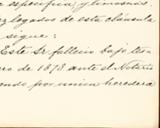 específica, y limosnas.
y legados de esta cláusula
sigue:
Este Sr. falleció bajo tes
ero de 1878 ante el Notario
endo por única heredera